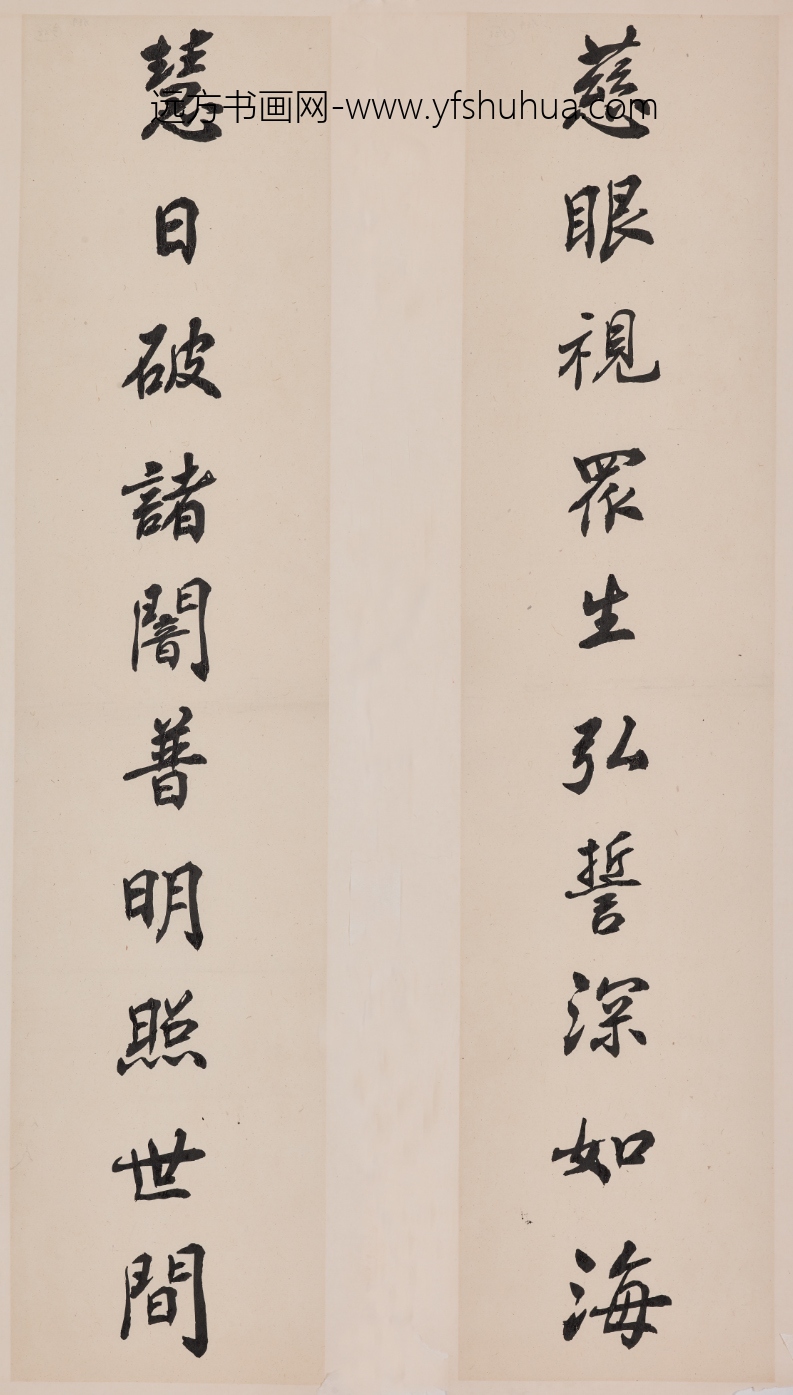 慈眼視眾生弘誓深如海
慧日破諸闇普明照世間
远方书画网-www.yfshuhua.com